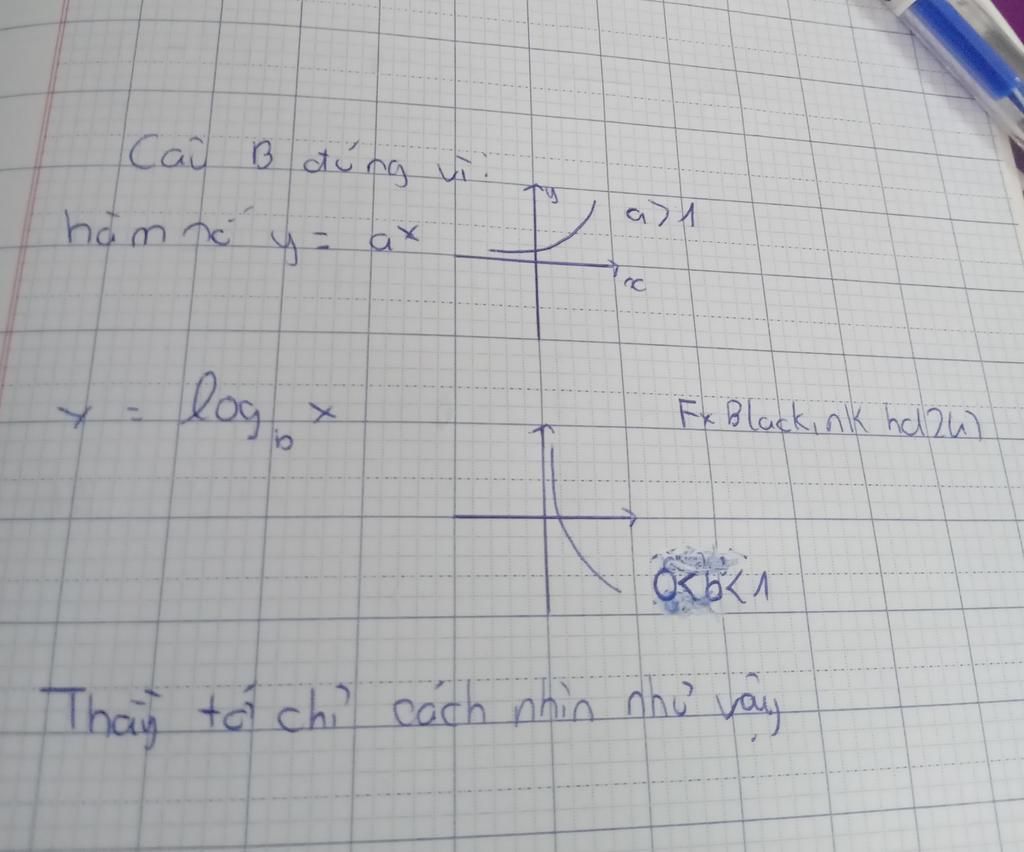 Câu B đúng vì:
hàm số y = aˣ
y
a>1
x
y = log_b x
Fx Blackink hd2u)
0<b<1
Thầy tớ chỉ cách nhìn như vậy